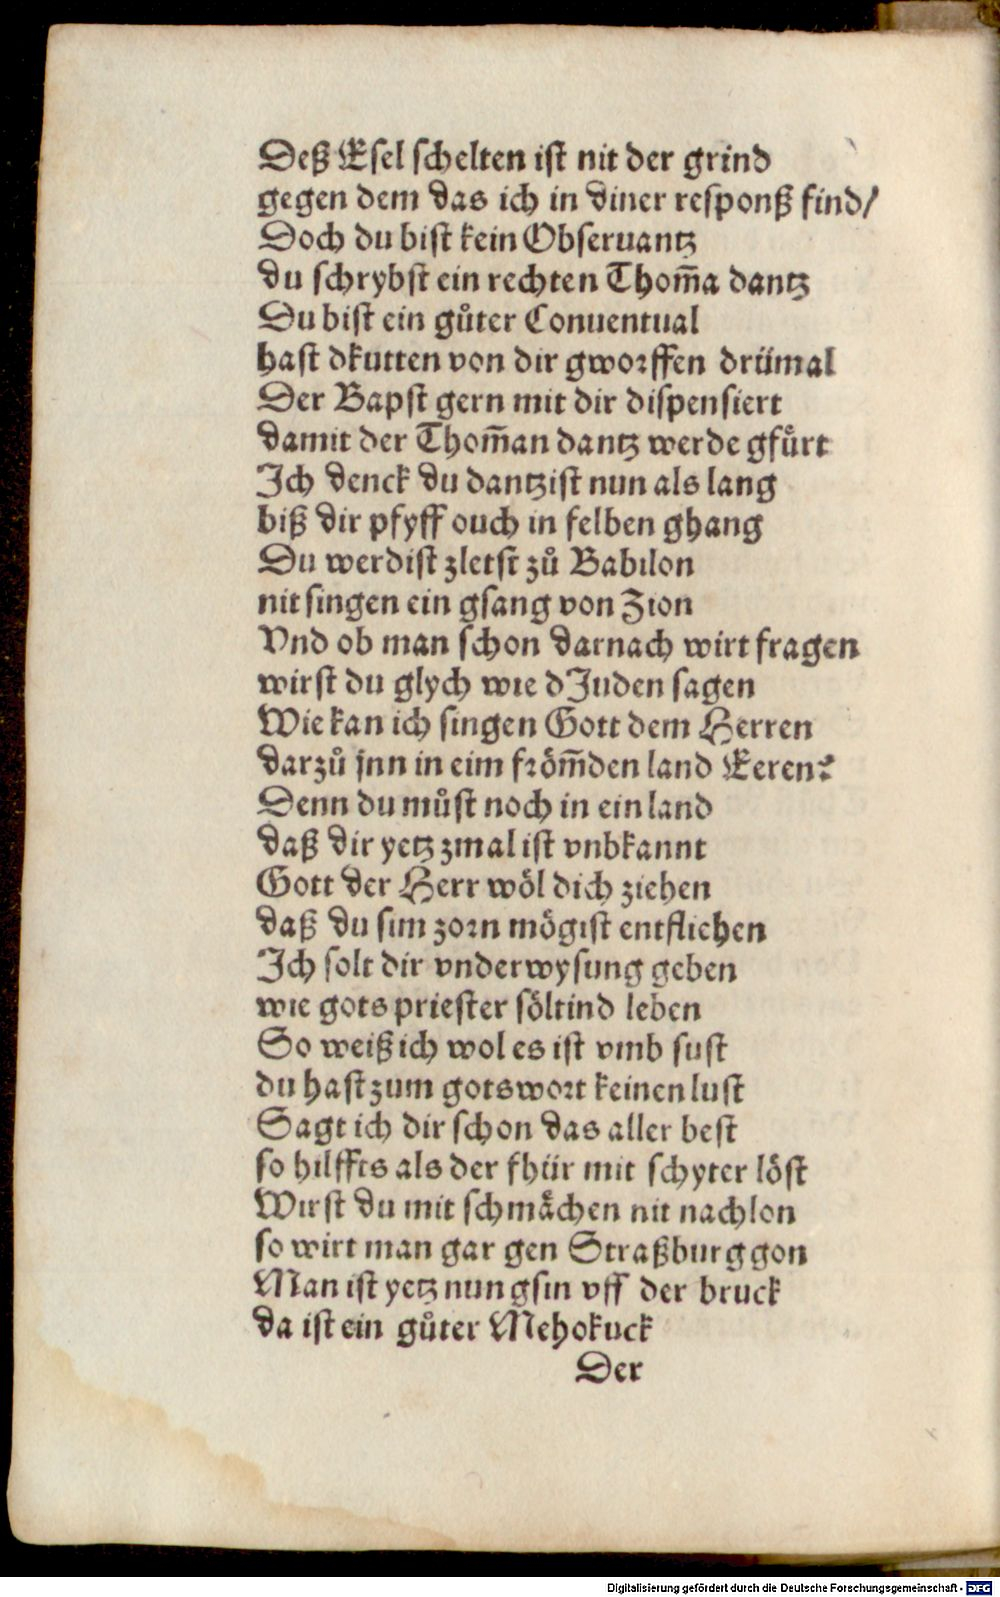 Deß Esel schelten ist nit der grind
gegen dem das ich in diner responß find/
Doch du bist kein Obseruantz
du schrybst ein rechten Thom̄a dantz
Du bist ein gůter Conuentual
hast dkutten von dir gworffen drümal
Der Bapst gern mit dir dispensiert
damit der Thom̄an dantz werde gfůrt
Ich denck du dantzist nun als lang
biß dir pfyff ouch in felben ghang
Du werdist zletst zů Babilon
nit singen ein gsang von Zion
Vnd ob man schon darnach wirt fragen
wirst du glych wie dJuden sagen
Wie kan ich singen Gott dem Herren
darzů jnn in eim fröm̄den land Eeren?
Denn du můst noch in ein land
daß dir yetz zmal ist vnbkannt
Gott der Herr wöl dich ziehen
daß du sim zorn mögist entfliehen
Ich solt dir vnderwysung geben
wie gots priester söltind leben
So weiß ich wol es ist vmb sust
du hast zum gotswort keinen lust
Sagt ich dir schon das aller best
so hilffts als der fhür mit schyter löst
Wirst du mit schmåchen nit nachlon
so wirt man gar gen Straßburg gon
Man ist yetz nun gsin vff der bruck
da ist ein gůter Mehokuck
Der
Digitalisierung gefördert durch die Deutsche Forschungsgemeinschaft - DFG